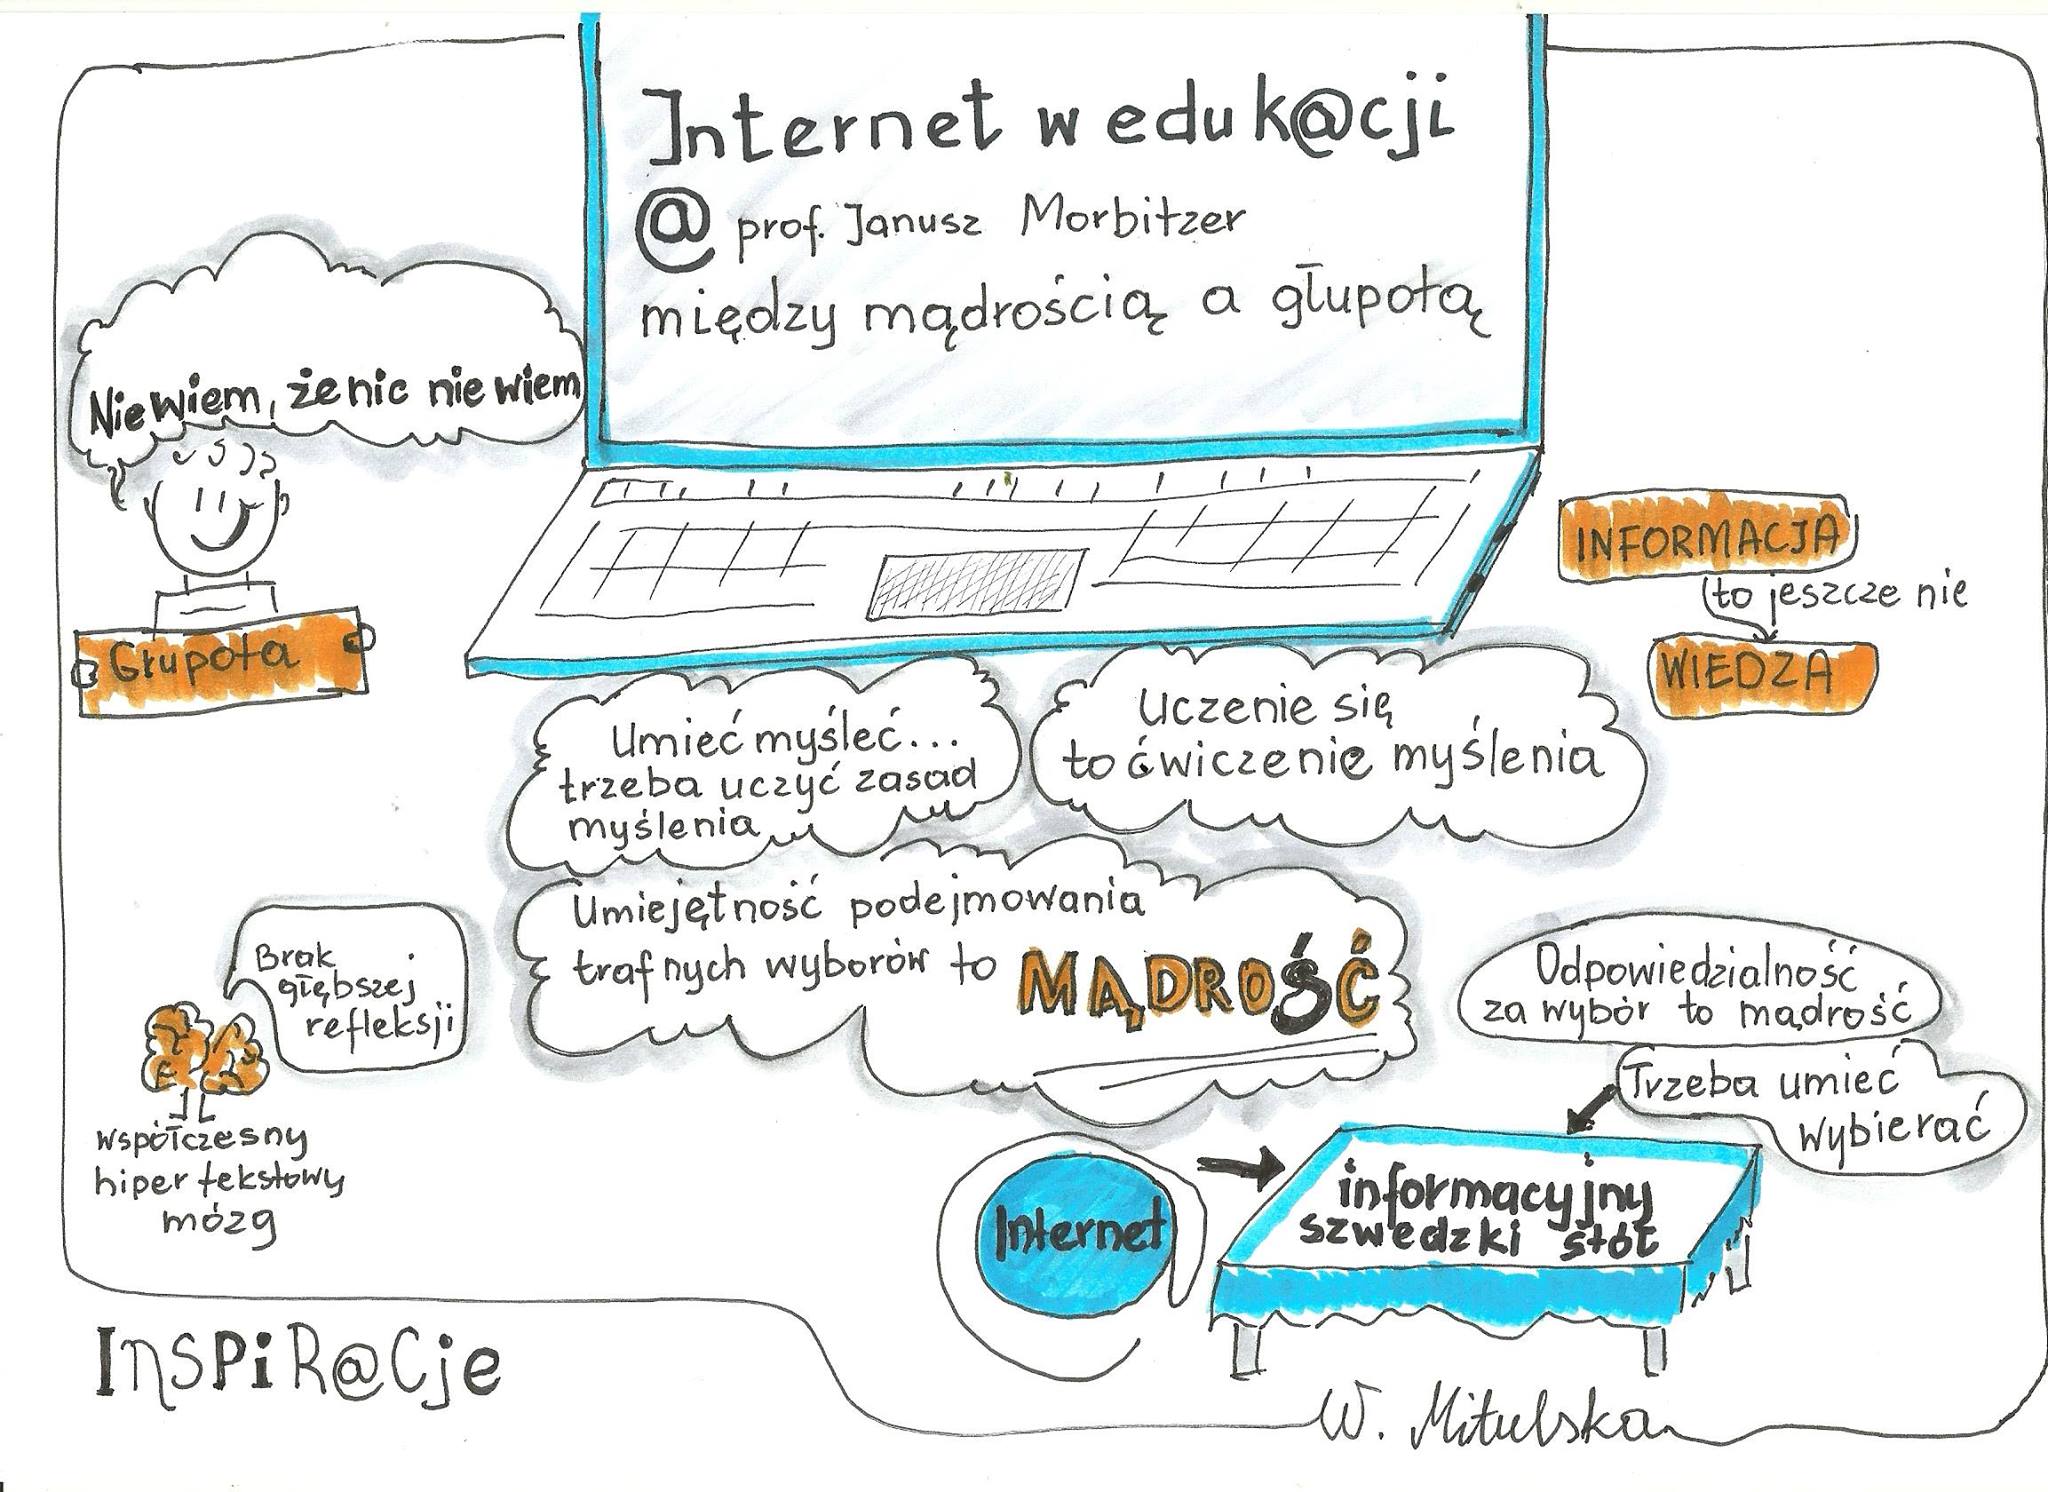 Internet w eduk@cji
@ prof. Janusz Morbitzer
między mądrością a głupotą
Nie wiem, że nic nie wiem
Głupota
INFORMACJA
to jeszcze nie
WIEDZA
Umieć myśleć...
trzeba uczyć zasad
myślenia
Uczenie się
to ćwiczenie myślenia
Umiejętność podejmowania
trafnych wyborów to MĄDROŚĆ
Brak
głębszej
refleksji
współczesny
hipertekstowy
mózg
Odpowiedzialność
za wybór to mądrość
Trzeba umieć
wybierać
Internet
informacyjny
szwedzki stół
InSPiR@Cje
W. Mitulska